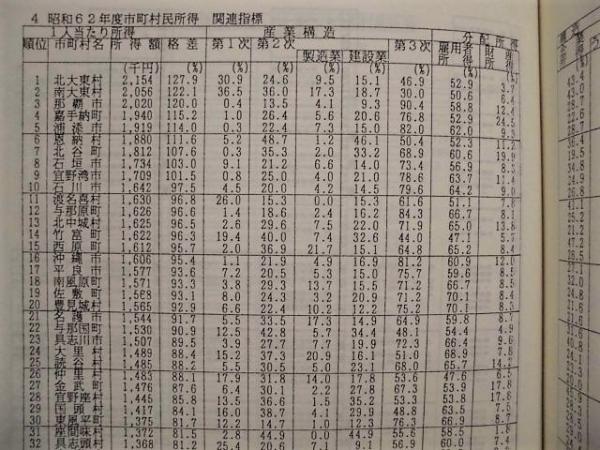 4 昭和62年度市町村民所得 関連指標
1人当たり所得 産業構造 分配所得
順位 市町村名 所得額 格差 第1次 第2次 製造業 建設業 第3次 雇用者所得 財産所得
(千円) (%) (%) (%) (%) (%) (%) (%) (%)
1 北大東村 2,154 127.9 30.9 24.6 9.5 15.1 46.9 52.9 3.7
2 南大東村 2,056 122.1 36.5 36.0 17.3 18.7 30.0 50.6 6.4
3 那覇市 2,020 120.0 0.4 13.5 4.1 9.3 90.4 58.8 12.4
4 嘉手納町 1,940 115.2 1.0 26.4 5.6 20.6 76.8 52.9 24.5
5 浦添市 1,919 114.0 0.3 22.4 7.3 15.0 82.0 62.0 9.3
6 恩納村 1,880 111.6 5.2 48.7 1.2 46.1 50.4 52.3 11.2
7 北谷町 1,812 107.6 0.3 35.3 2.0 33.2 68.9 60.6 19.9
8 石垣市 1,734 103.0 9.1 21.2 6.6 14.0 73.4 56.9 8.3
9 宜野湾市 1,709 101.5 0.8 25.0 4.0 21.0 78.6 63.7 11.4
10 石川市 1,642 97.5 4.5 20.0 4.2 14.5 79.6 64.2 9.0
11 渡名喜村 1,630 96.8 26.0 15.3 0.0 15.3 61.6 51.1 7.8
12 与那原町 1,626 96.6 1.4 18.6 2.4 16.2 84.3 66.7 8.1
13 北中城村 1,625 96.5 2.6 29.6 7.5 22.0 71.9 65.0 13.8
14 竹富町 1,622 96.3 19.4 40.0 7.4 32.6 44.0 47.1 5.7
15 西原町 1,612 95.7 2.0 36.9 21.7 15.1 64.8 65.2 8.4
16 沖縄市 1,606 95.4 1.1 21.9 4.9 16.9 81.2 60.9 12.0
17 平良市 1,577 93.6 7.2 20.5 5.3 15.0 75.7 59.6 8.5
18 南風原町 1,571 93.3 3.8 29.3 13.7 15.5 71.2 66.7 8.5
19 佐敷町 1,568 93.1 8.0 24.3 3.2 20.9 71.2 70.1 8.4
20 豊見城村 1,565 92.9 6.6 22.4 10.2 12.2 75.2 70.1 8.3
21 名護市 1,544 91.7 5.5 33.5 17.3 14.9 64.9 59.8 8.7
22 与那国町 1,530 90.9 12.5 42.8 5.7 34.4 48.1 54.4 4.9
23 具志川市 1,507 89.5 3.9 27.7 7.7 19.9 72.3 66.4 9.6
24 大里村 1,489 88.4 15.2 37.3 20.9 16.1 51.0 68.9 7.8
25 読谷村 1,485 88.2 5.5 30.5 5.0 23.1 68.0 65.7
26 仲里村 1,483 88.1 17.9 31.8 14.0 17.8 53.6 47.6 6.5
27 金武町 1,476 87.6 6.4 30.1 2.2 27.8 67.3 53.9 17.8
28 宜野座村 1,445 85.8 13.5 36.6 1.5 35.2 53.3 53.8 17.8
29 国頭村 1,417 84.1 16.0 38.7 4.1 29.9 48.8 63.5
30 東風平町 1,375 81.7 12.2 14.7 1.0 12.3 76.3 66.9 8.7
31 座間味村 1,372 81.5 2.8 44.9 0.0 44.9 55.6 58.5 1.8
32 具志頭村 1,368 81.2 25.4 20.6 7.1 9.1 56.9 60.0 7.4